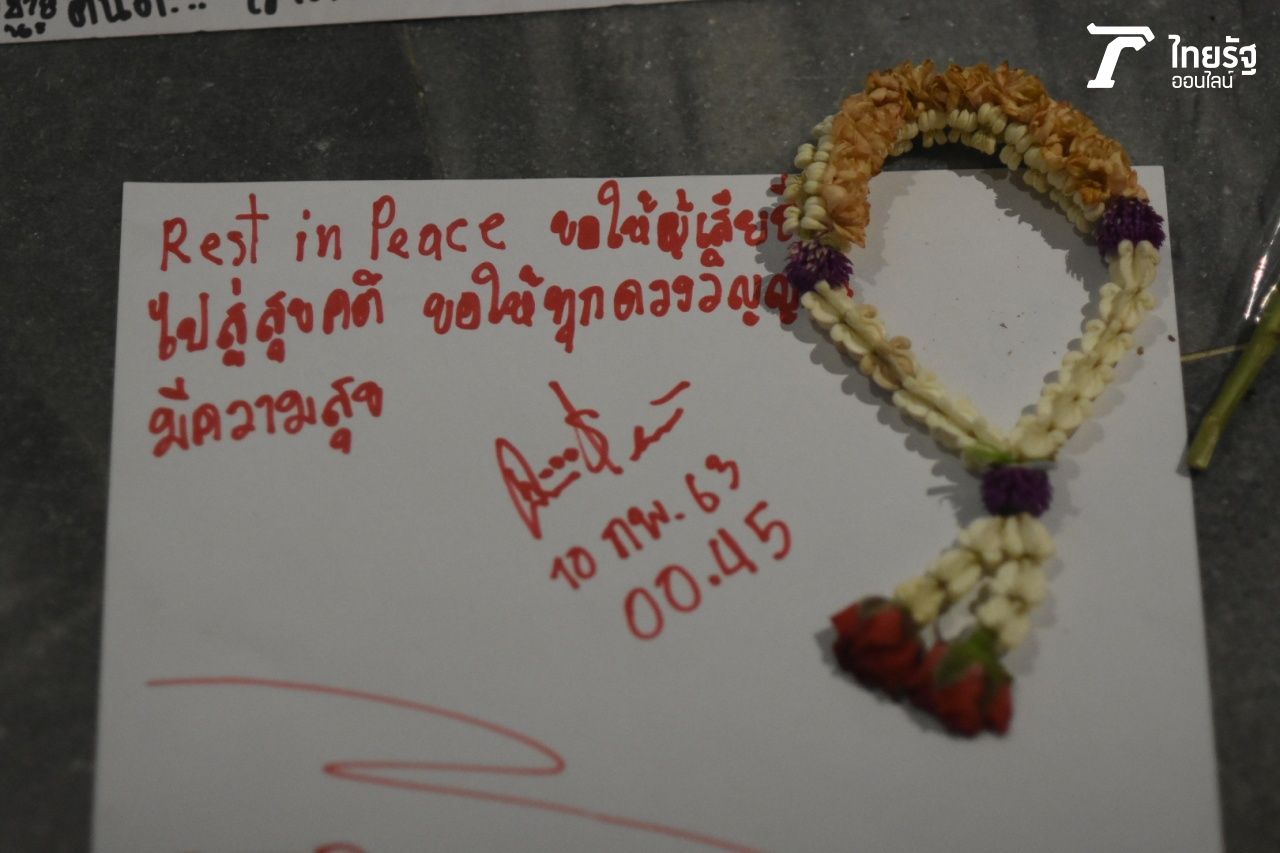 ไทยรัฐ
ออนไลน์
Rest in Peace ขอให้ผู้เสีย
ไปสู่สุขคติ ขอให้ทุกดวงวิญญ
มีความสุข
10 กพ. 63
00.45